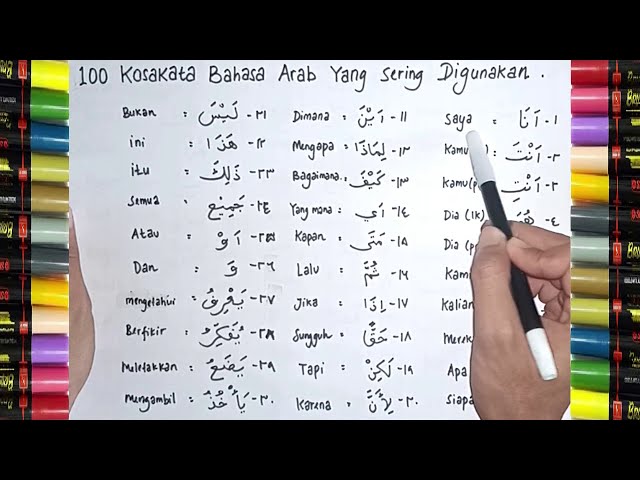 100 Kosakata Bahasa Arab Yang Sering Digunakan.
Saya : اَنَا -١
Kamu : اَنْتَ -٢
Kamu(p : اَنْتِ -٣
Dia (lk) -٤
Dia (p
Kami
Kalian
Merek
Apa
Siapa
Dimana : اَيْنَ -١١
Mengapa : لِمَاذَا -١٢
Bagaimana : كَيْفَ -١٣
Yang mana : اَي -١٤
Kapan : مَتَى -١٥
Lalu : ثُمَّ -١٦
Jika : اِذَا -١٧
Sungguh : حَقًّا -١٨
Tapi : لَكِنْ -١٩
Karena : لِأَنَّ -٢٠
Bukan : لَيْسَ -٢١
ini : هَذَا -٢٢
itu : ذَلِكَ -٢٣
Semua : جَمِيْع -٢٤
Atau : اَوْ -٢٥
Dan : وَ -٢٦
mengetahui : يَعْرِفُ -٢٧
Berfikir : يُفَكِّرُ -٢٨
Meletakkan : يَضَعُ -٢٩
Mengambil : يَأْخُذُ -٣٠